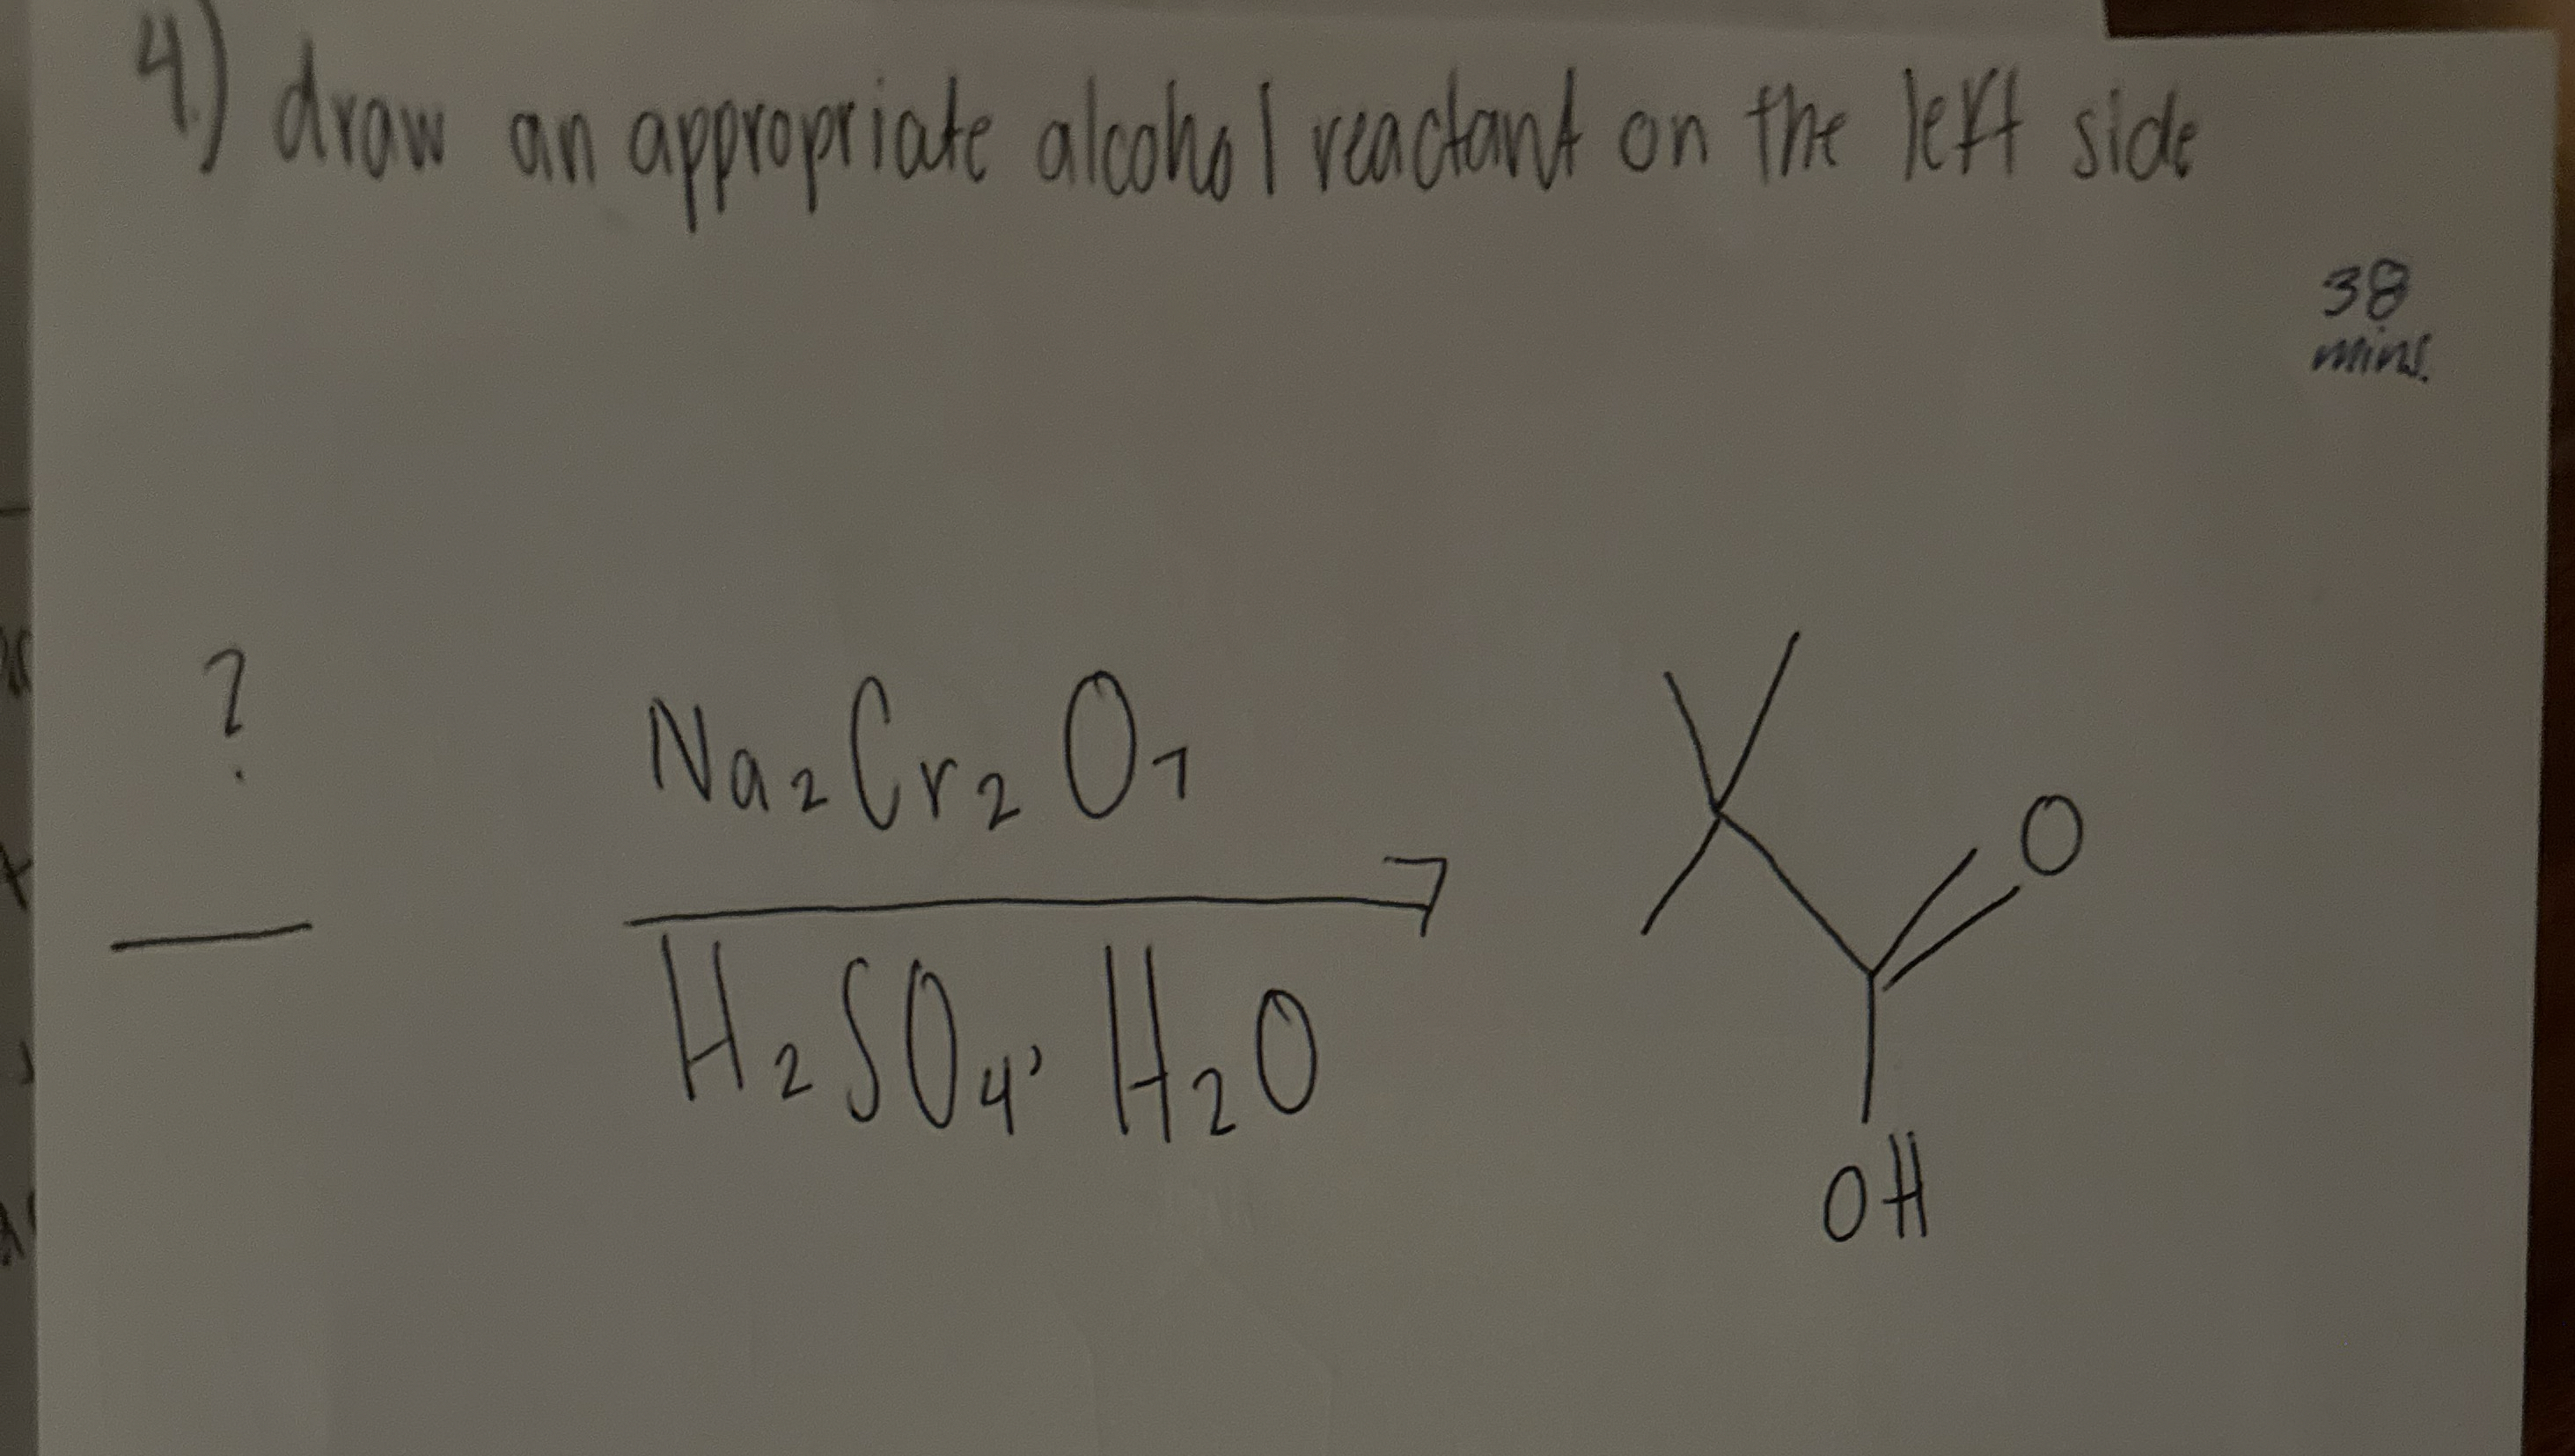 4) draw an appropriate alcohol reactant on the left side
38
mins.
?
Na₂Cr₂O₇
H₂SO₄, H₂O
O
OH